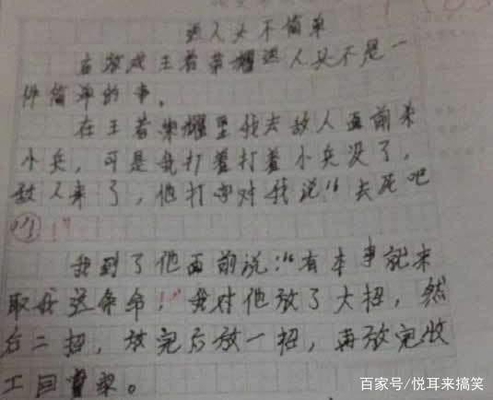 送人头不简单
在游戏王者荣耀送人头不是一
件简单的事。
在王者荣耀里我去敌人面前杀
小兵,可是我打着打着小兵没了,
敌人来了,他打字对我说:"去死吧
吖!"
我到了他面前说:"有本事就来
取我这条命!"我对他放了大招,然
后二招,放完后放一招,再放完收
工回家。
百家号/悦耳来搞笑